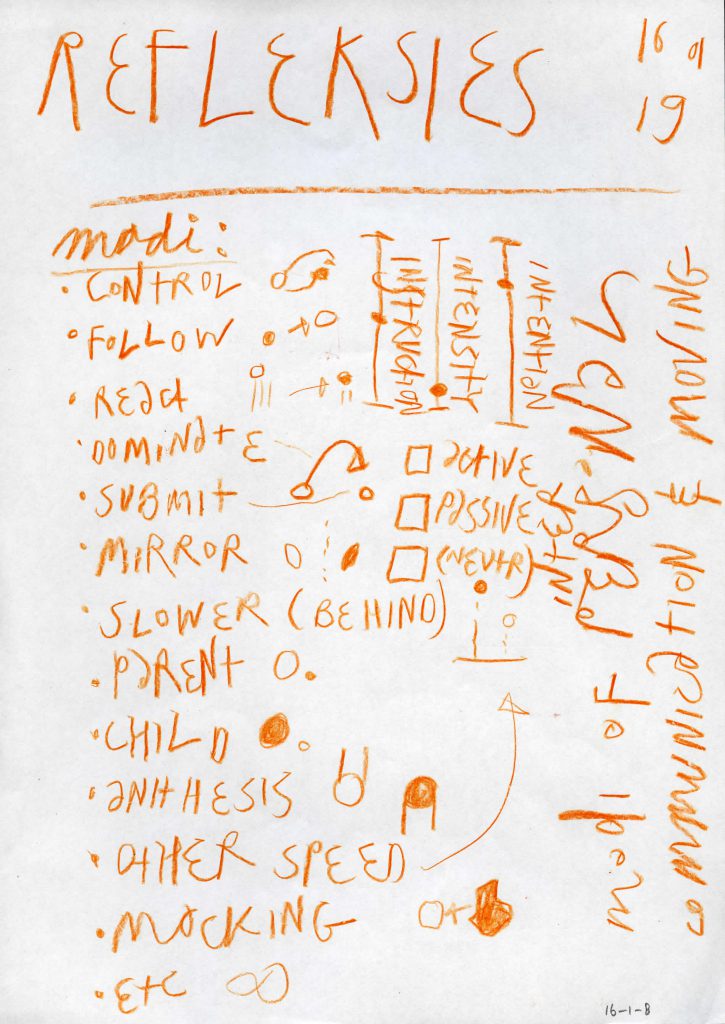 REFLEKSIES
16 01
19
modi:
• CONTROL
• FOLLOW
• REACT
• DOMINATE
• SUBMIT
• MIRROR
• SLOWER (BEHIND)
• PARENT
• CHILD
• ANTHESIS
• OTHER SPEED
• MOCKING
• ETC ∞
INSTRUCTION
INTENSITY
INTENTION
ACTIVE
PASSIVE
(NEUTR)
modi OF
COMMUNICATION & MOVING
16-1-8